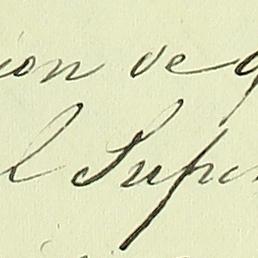 ion de g
l Supe